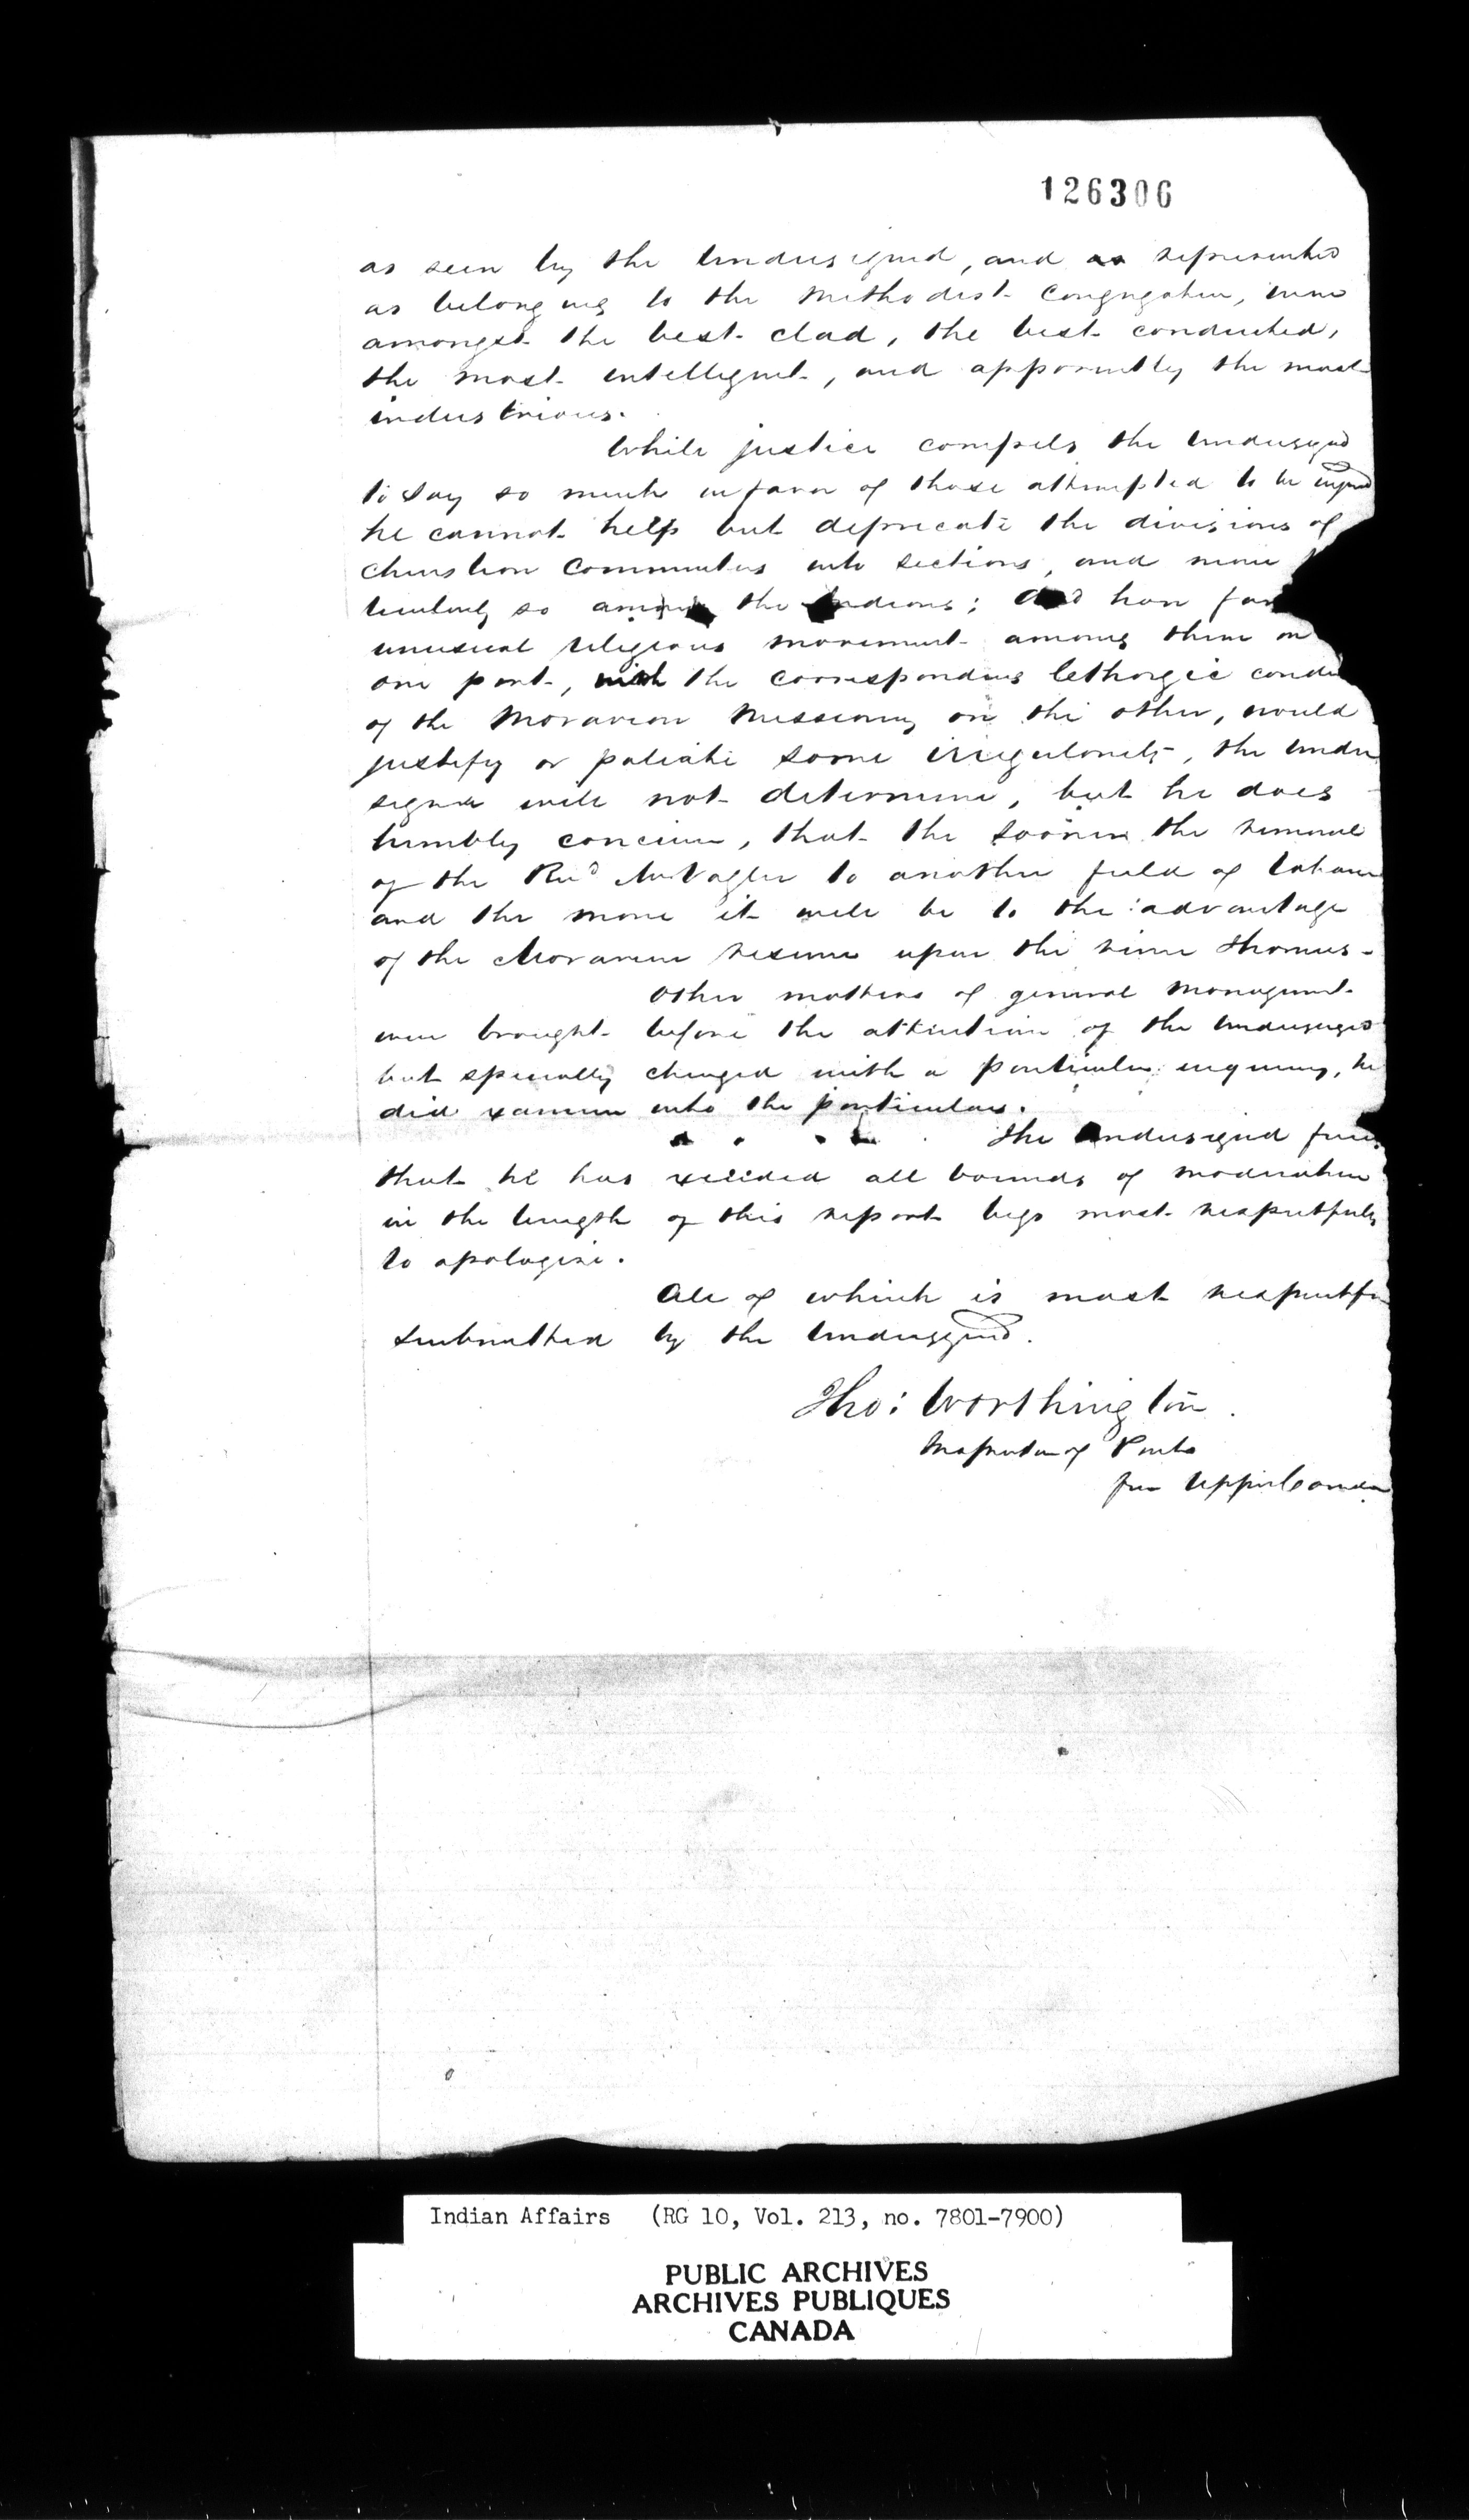 126306
as seen by the Undersigned, and as represented
as belonging to the Methodist Congregation, were
amongst the best clad, the best conducted,
the most intelligent, and apparently the most
industrious.
While justice compels the Undersigned
to say so much in favor of those attempted to be
he cannot help but deprecate the divisions of
Christian Communities into sections, and more
so among the Indians; And how far
unusual religious movement among them on
one part, with the corresponding lethargic
of the Moravian Missionary on the other, would
justify or paliate some irregularities, the Under
signed will not determine, but he does
humbly conceive, that the sooner the removal
of the Revd Mr Vogler to another field of labour
and the more it will be to the advantage
of the Moravian upon the river Thames -
Other matters of general management
were brought before the attention of the Undersigned
but specially charged with a particular inquiry, he
did examine into the particulars.
The Undersigned
that he has exceeded all bounds of moderation
in the length of this report begs most respectfully
to apologize.
All of which is most
submitted by the Undersigned.
Tho: Worthington.
Inspector of
for Upper Canada
Indian Affairs (RG 10, Vol. 213, no. 7801-7900)
PUBLIC ARCHIVES
ARCHIVES PUBLIQUES
CANADA